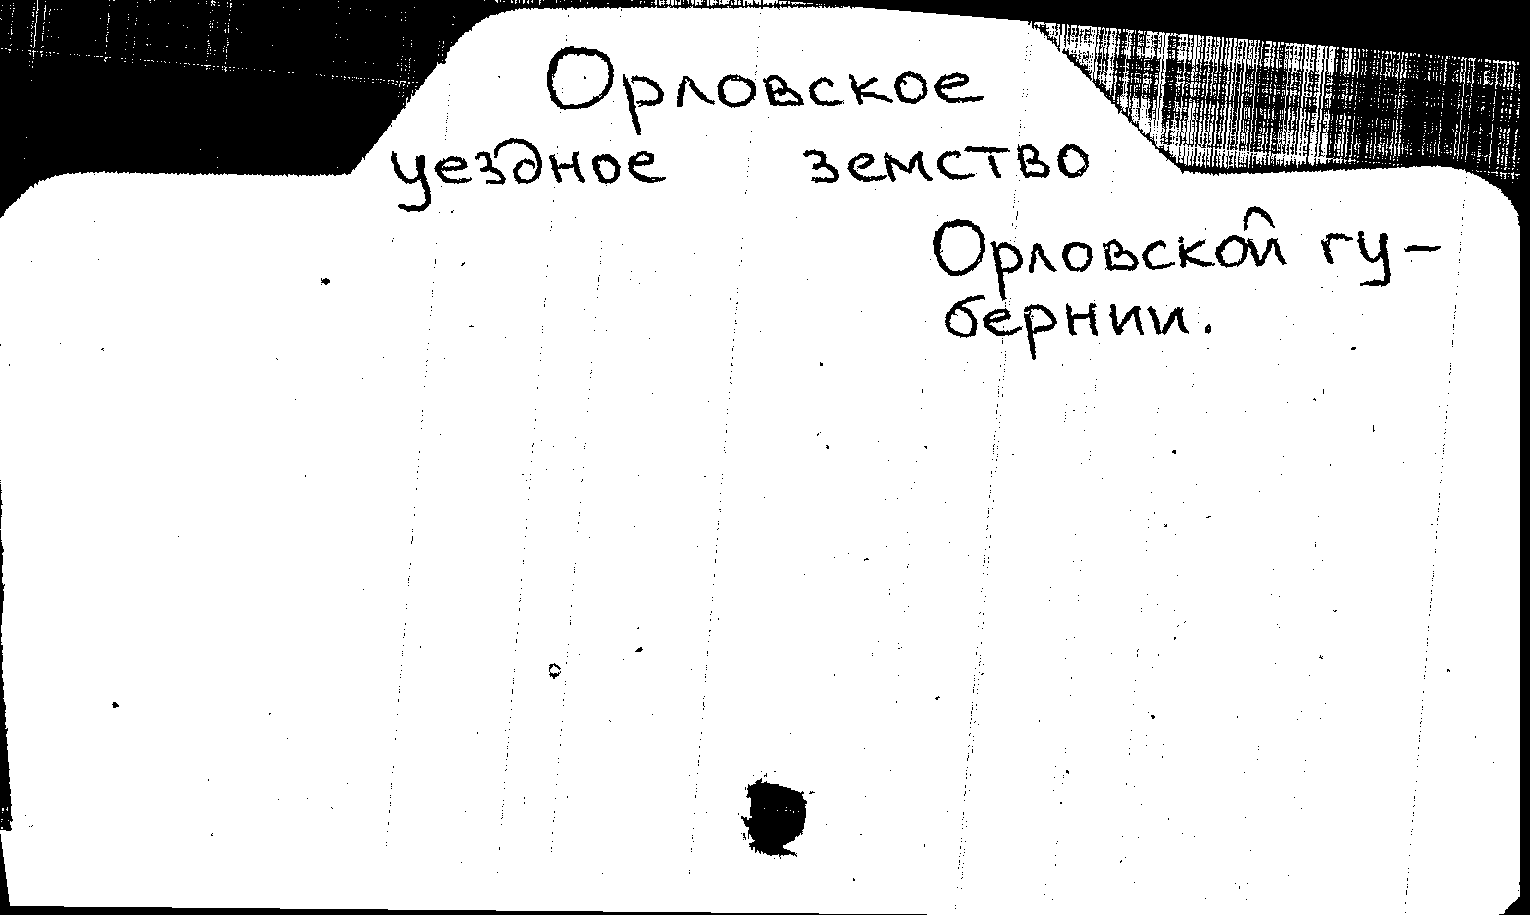 Орловское
уездное земство
Орловской гу-
бернии.